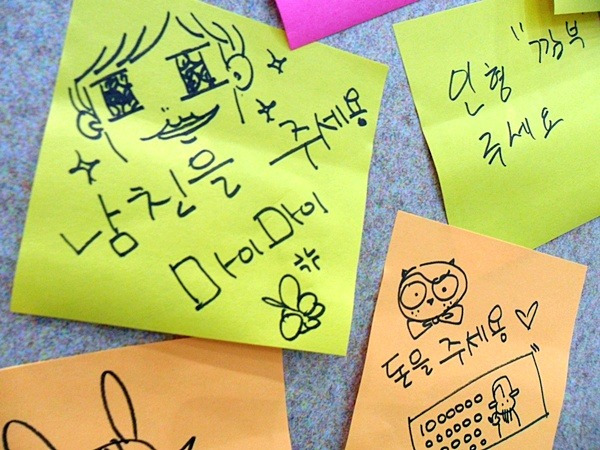 남친을
주세용
마이마이
인형
주세요
돈을 주세용 ♡